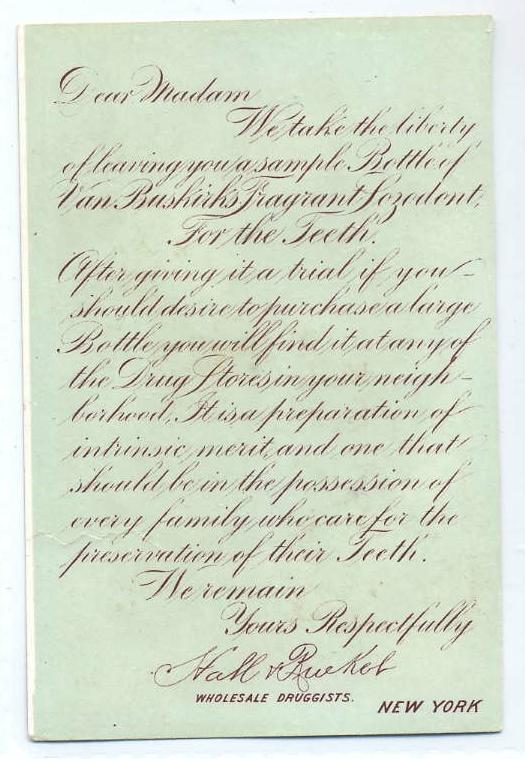 Dear Madam
We take the liberty
of leaving you a sample Bottle of
Van Buskirk's Fragrant Sozodont,
For the Teeth.
After giving it a trial if you
should desire to purchase a large
Bottle you will find it at any of
the Drug Stores in your neigh-
borhood. It is a preparation of
intrinsic merit, and one that
should be in the possession of
every family who care for the
preservation of their Teeth.
We remain
Yours Respectfully
Hall & Ruckel
WHOLESALE DRUGGISTS.
NEW YORK